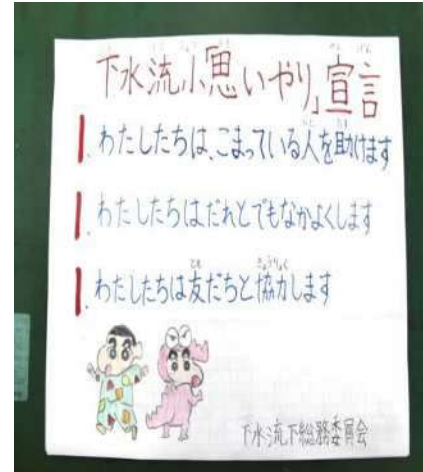 下水流小「思いやり」宣言
1、わたしたちは、こまっている人を助けます
1、わたしたちはだれとでもなかよくします
1、わたしたちは友だちと協力します
下水流下総務委員会